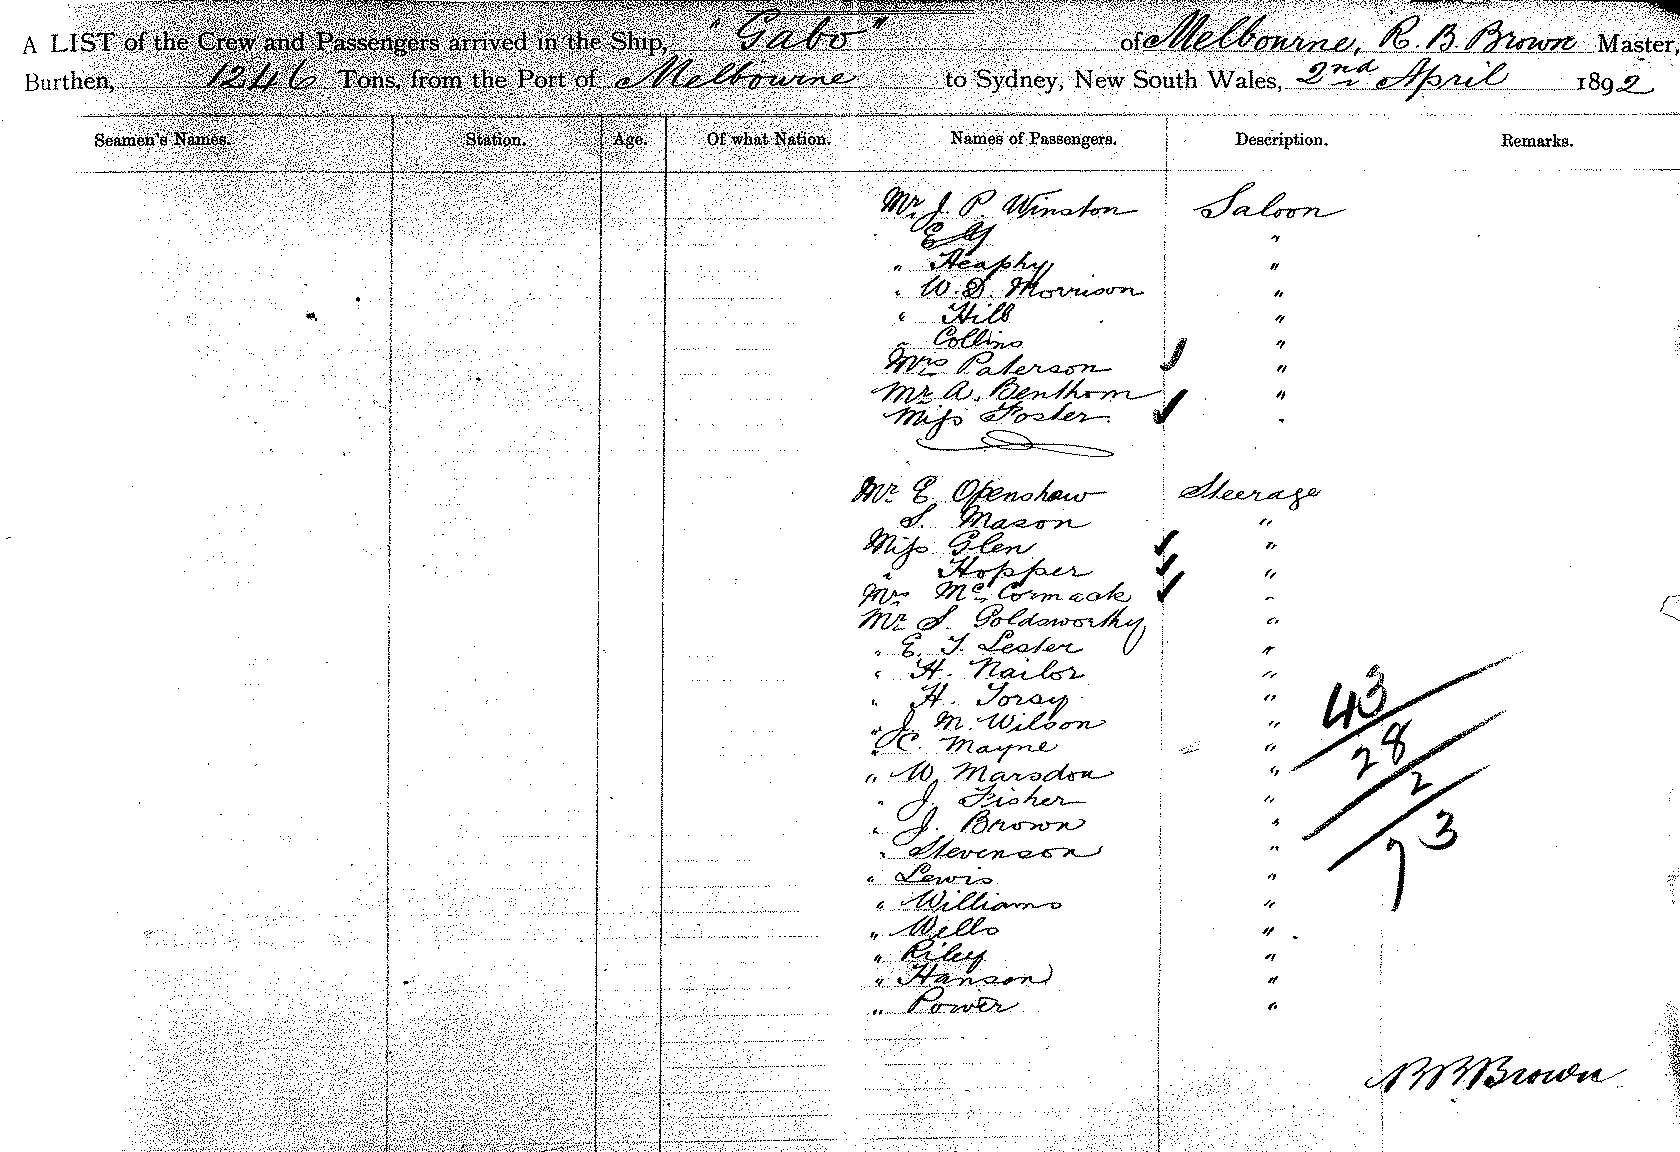 A LIST of the Crew and Passengers arrived in the Ship, "Gabo" of Melbourne, R. B. Brown Master,
Burthen, 1246 Tons, from the Port of Melbourne to Sydney, New South Wales, 2nd April 1892
Seamen's Names. Station. Age. Of what Nation. Names of Passengers. Description. Remarks.
Mr. J. P. Winston Saloon
E "
" Heaphy "
" W. D. Morrison "
" Hill "
" Collins "
Mrs Paterson ✓ "
Mr. A. Benthom "
Miss Foster ✓ "
Mr E. Openshaw Steerage
S. Mason "
Miss Glen ✓ "
" Hopper ✓ "
Mrs McCormack ✓ "
Mr. S. Goldsworthy "
" E. T. Lester "
" H. Nailor "
" H. "
" J. M. Wilson "
" C. Mayne "
" W. Marsdon "
" J. Fisher "
" J. Brown "
" Stevenson "
" Lewis "
" Williams "
" Wells "
" Riley "
" Hanson "
" Power "
43
28
2
73
R B Brown